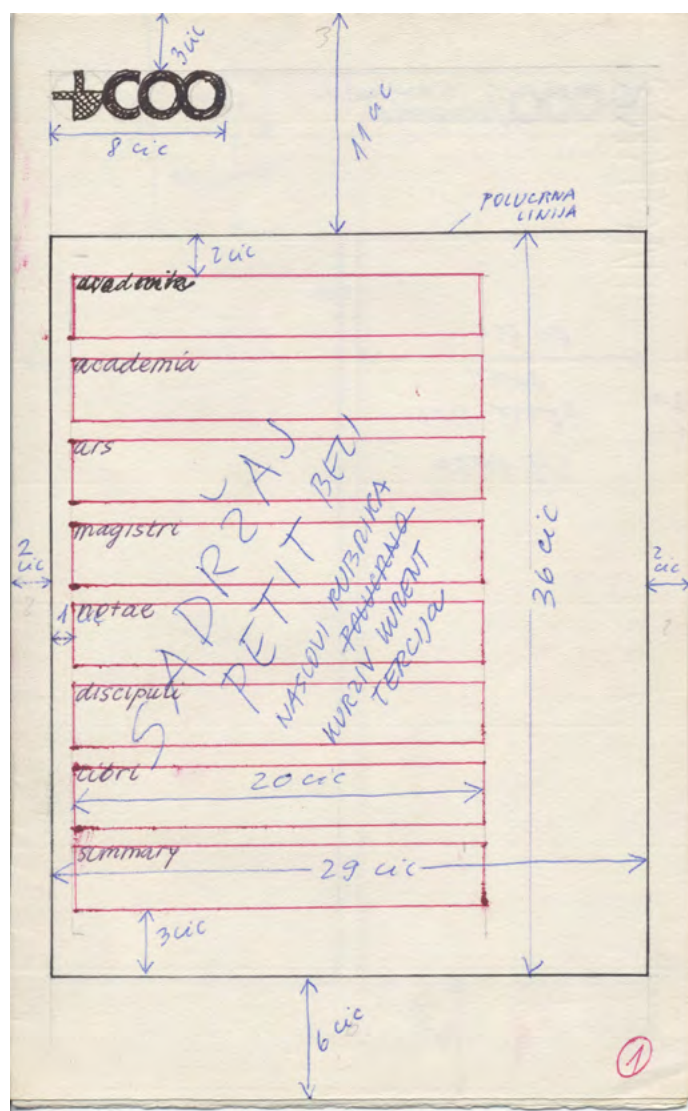 3 cic
COO
8 cic
11 cic
POLUCRNA
LINIJA
2 cic
academia
ars
magistri
notae
discipuli
libri
summary
SADRŽAJ
PETIT BELI
NASLOVI RUBRIKA
POLUCRNO
KURZIV KURENT
TERCIJA
2
cic
1 cic
36 cic
2
cic
20 cic
29 cic
3 cic
6 cic
1